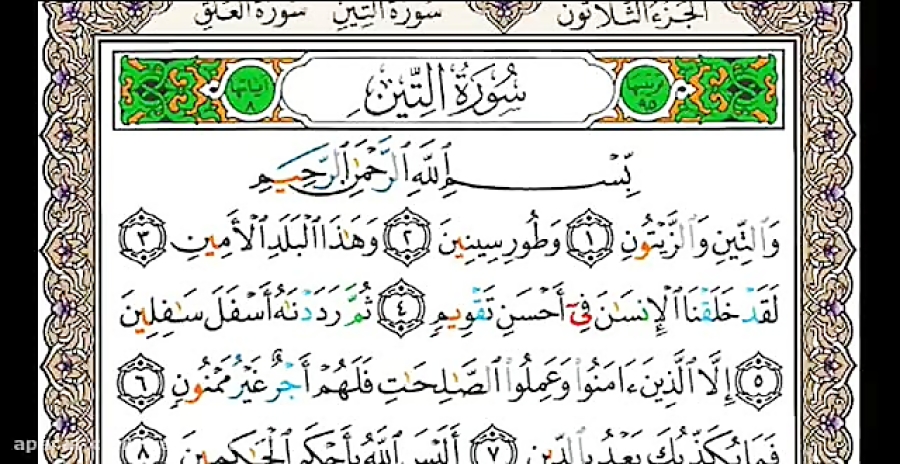 الجزء الثلاثون سورة التين سورة العلق
آياتها ٨ سُورَةُ التِّينِ ترتيبها ٩٥
بِّسْمِ ٱللَّهِ ٱلرَّحْمَٰنِ ٱلرَّحِيمِ
وَٱلتِّينِ وَٱلزَّيْتُونِ ١ وَطُورِ سِينِينَ ٢ وَهَٰذَا ٱلْبَلَدِ ٱلْأَمِينِ ٣
لَقَدْ خَلَقْنَا ٱلْإِنسَٰنَ فِىٓ أَحْسَنِ تَقْوِيمٍ ٤ ثُمَّ رَدَدْنَٰهُ أَسْفَلَ سَٰفِلِينَ
٥ إِلَّا ٱلَّذِينَ ءَامَنُوا۟ وَعَمِلُوا۟ ٱلصَّٰلِحَٰتِ فَلَهُمْ أَجْرٌ غَيْرُ مَمْنُونٍ ٦
فَمَا يُكَذِّبُكَ بَعْدُ بِٱلدِّينِ ٧ أَلَيْسَ ٱللَّهُ بِأَحْكَمِ ٱلْحَٰكِمِينَ ٨